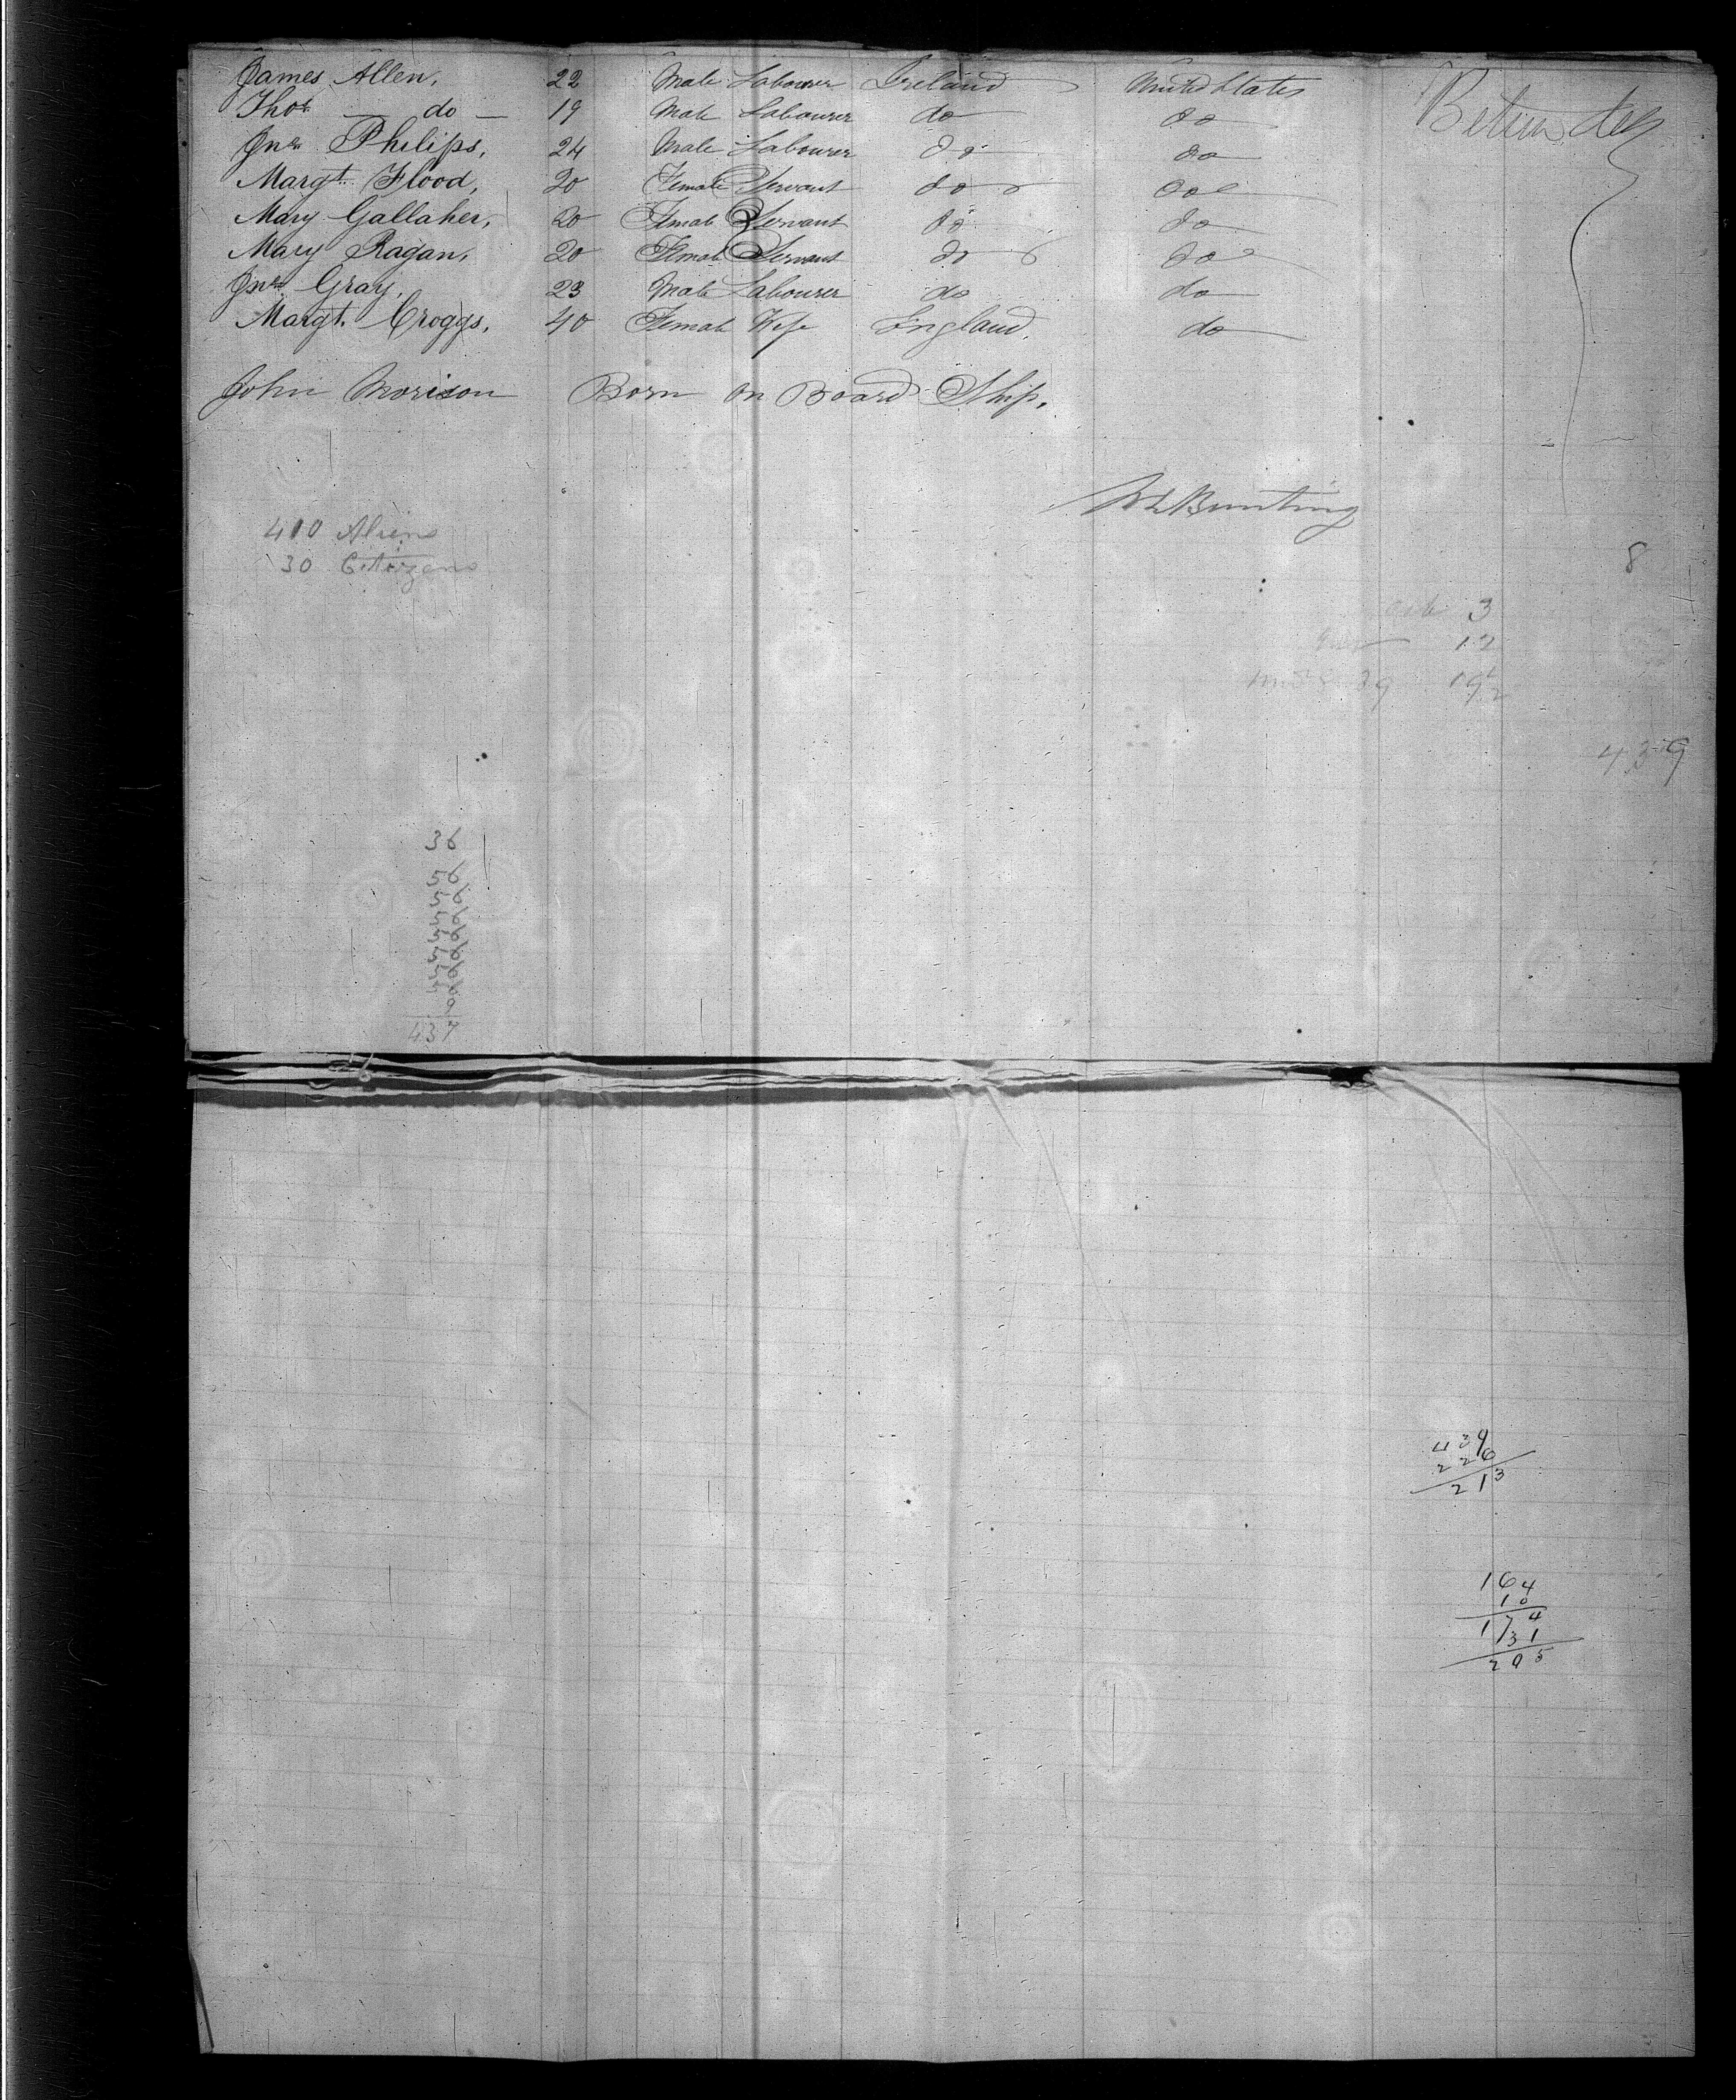 James Allen, 22 Male Labourer Ireland United States
Thos — do — 19 Male Labourer do do
Jno Philips, 24 Male Labourer do do
Margt. Flood, 20 Female Servant do do
Mary Gallaher, 20 Female Servant do do
Mary Ragan, 20 Female Servant do do
Jno Gray, 23 Male Labourer do do
Margt. Croggs, 40 Female Wife England, do
Between decks
John Morison Born on Board Ship,
Bunting
410 Aliens
30 Citizens
8
3
12
19
439
36
437
439
226
213
164
10
174
31
205